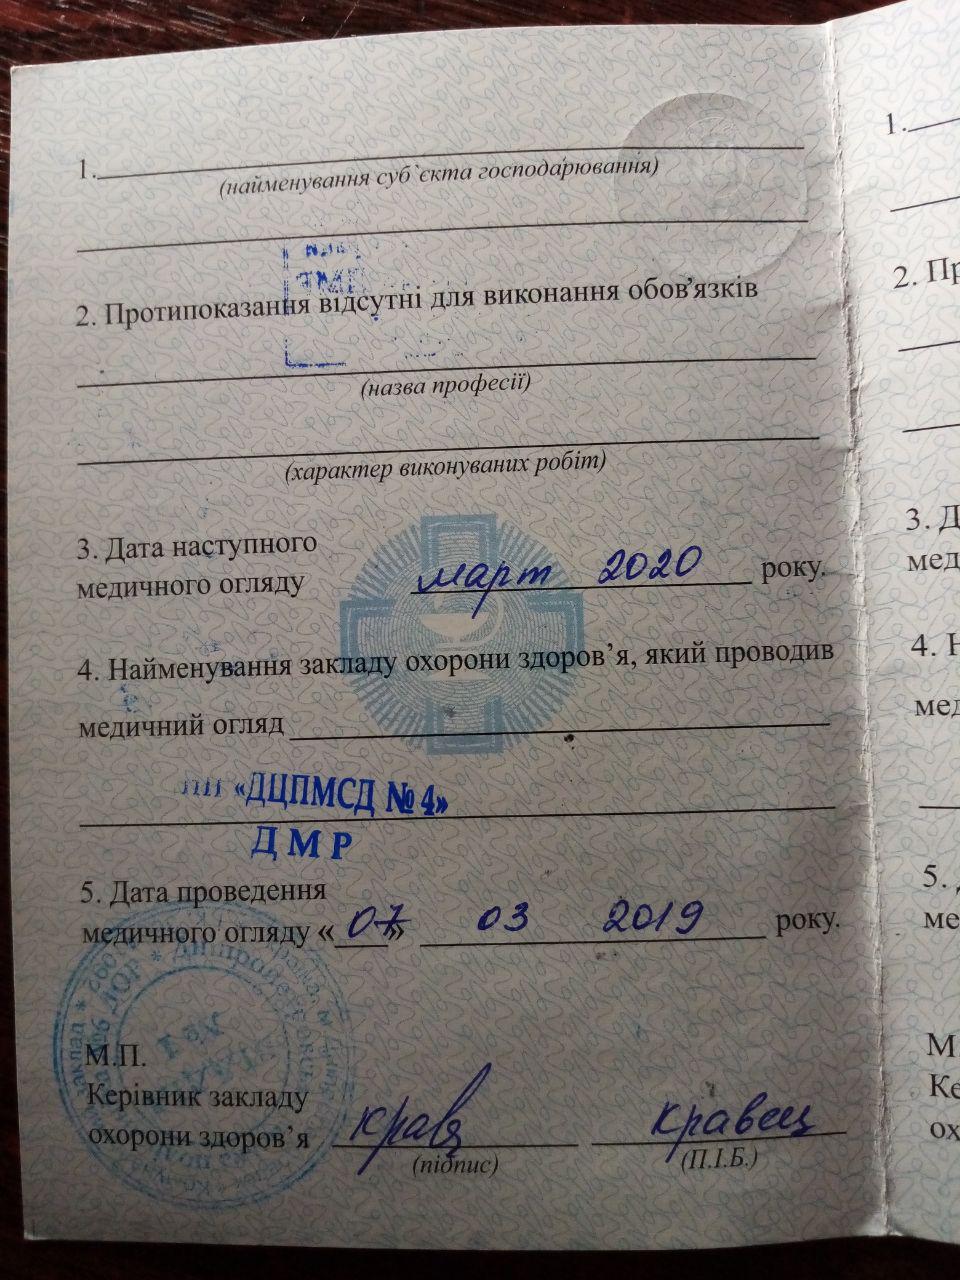 1.
(найменування суб`єкта господарювання)
2. Протипоказання відсутні для виконання обов’язків
(назва професії)
(характер виконуваних робіт)
3. Дата наступного
медичного огляду март 2020 року.
4. Найменування закладу охорони здоров’я, який проводив
медичний огляд
«ДЦПМСД № 4»
ДМР
5. Дата проведення
медичного огляду «07» 03 2019 року.
М.П.
Керівник закладу
охорони здоров’я Кравец
(підпис) (П.І.Б.)
1.
2. Пр
3. Д
мед
4. Н
мед
5.
ме
М
Ке
ох